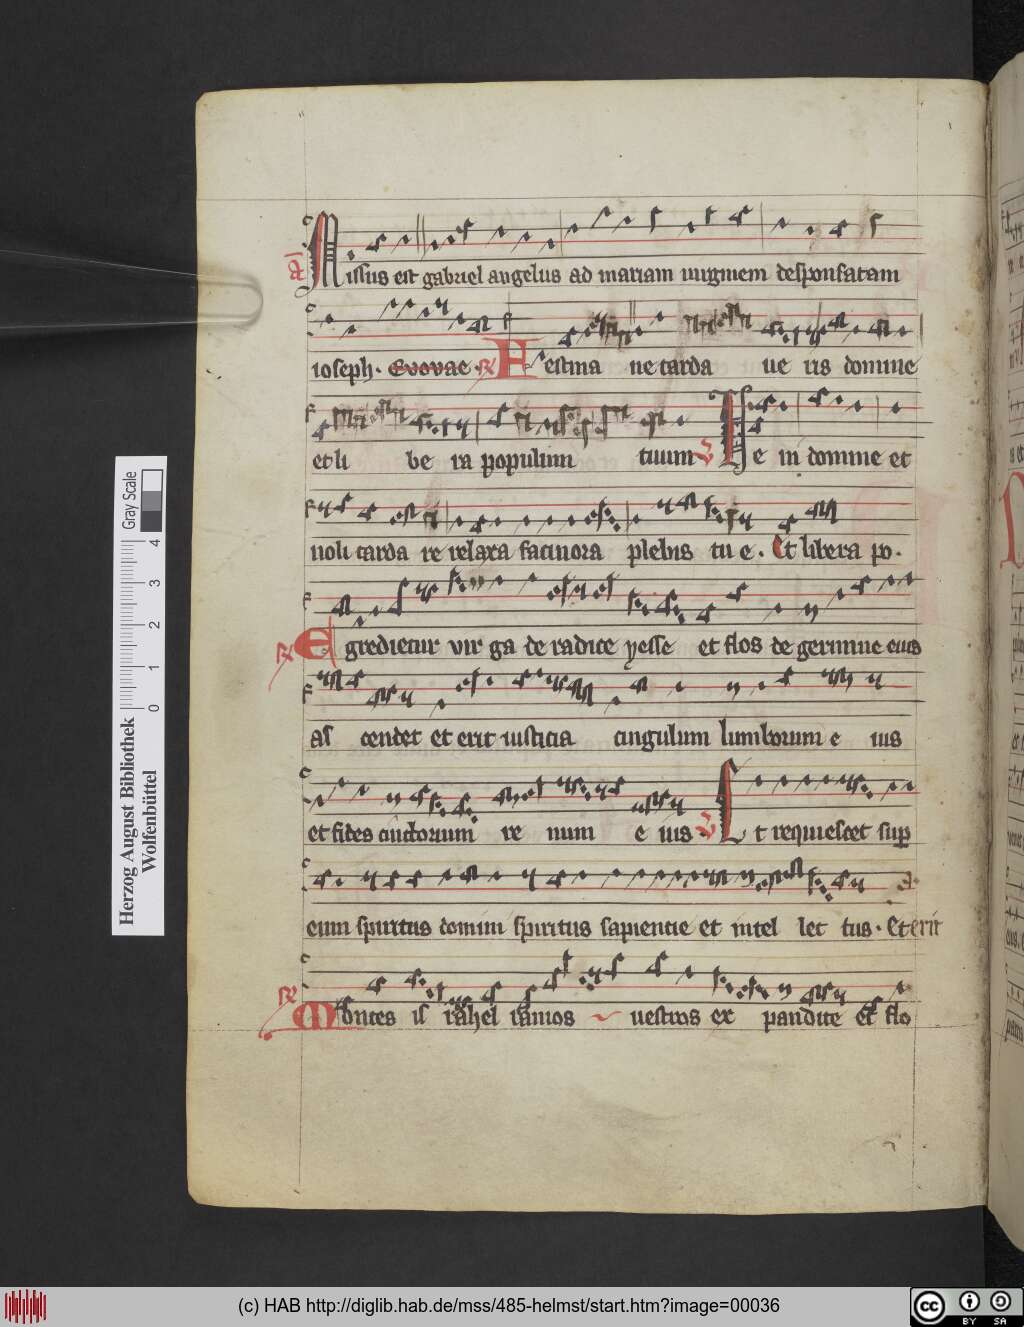 Missus est gabriel angelus ad mariam uirginem desponsatam
ioseph. Evovae. R Festina ne tarda ue ris domine
et li be ra populum tuum V Ve ni domine et
noli tarda re relaxa facinora plebis tu e. Et libera po.
R Egredietur vir ga de radice yesse et flos de germine eius
as cendet et erit iusticia cingulum lumborum e ius
et fides cinctorium re num e ius V Et requiescet sup
eum spiritus domini spiritus sapientie et intel lec tus. Et erit
R Montes is rahel ramos uestros ex pandite et flo
Herzog August Bibliothek
Wolfenbüttel
0 1 2 3 4
Gray Scale
(c) HAB http://diglib.hab.de/mss/485-helmst/start.htm?image=00036
cc BY SA